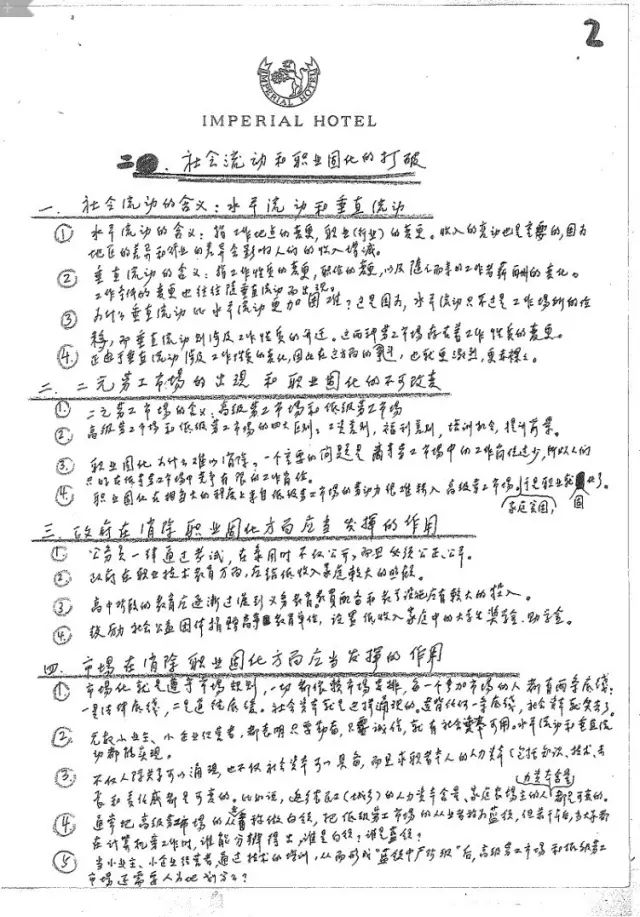 2
IMPERIAL HOTEL
IMPERIAL HOTEL
二. 社会流动和职业固化的打破
一. 社会流动的含义:水平流动和垂直流动
① 水平流动的含义:指工作地点的变更,职业(行业)的变更。收入的变动也是重要的,因为
地区的差异和行业的差异会影响人们的收入增减。
② 垂直流动的含义:指工作性质的变更,职位的变更,以及随之而来的工作者薪酬的变化。
工作条件的变更也往往随垂直流动而出现。
③ 为什么垂直流动比水平流动更加困难?这是因为,水平流动只不过是工作场所的转
移,而垂直流动则涉及工作性质的升迁。
④ 正由于垂直流动涉及工作性质的变化,因此在这方面的竞争,也就更激烈,更
二. 二元劳工市场的出现和职业固化的不可改变
① 二元劳工市场的含义:高级劳工市场和低级劳工市场
② 高级劳工市场和低级劳工市场的四大区别:工资差别,福利差别,培训机会,提升前景。
③ 职业固化为什么难以消除?一个主要的问题是高等劳工市场中的工作岗位过少,所以人们
只能在低等劳工市场中竞争有限的工作岗位。
④ 职业固化在相当大的程度上来自低级劳工市场的劳动力很难转入高级劳工市场。于是职业就固化了。
家庭贫困,
固
三. 政府在消除职业固化方面应当发挥的作用
① 公务员一律通过考试,在录用时不仅公开,而且必须公正、公平。
② 政府在职业技术教育方面,应给低收入家庭较大的照顾。
③ 高中阶段的教育应逐渐过渡到义务教育,教员配备和教学设施应有较大的投入。
④ 鼓励社会公益团体捐赠高等教育单位,设置低收入家庭中的大学生奖学金、助学金。
四. 市场在消除职业固化方面应当发挥的作用
① 市场化就是遵守市场规则,一切都依靠市场安排,每一个参加市场的人都有两条底线:
一是法律底线,二是道德底线。社会资本就是这样涌现的。违背任何一条底线,社会资本就丧失了。
② 无论小业主、小企业经营者,都表明只要勤奋,只要诚信,就有社会资本可用。水平流动和垂直流
动都能实现。
③ 不仅人际关系可以涌现,也不仅社会资本可以具备,而且求职者本人的人力资本(包括知识、技术、专
长和责任感都是可变的。比如说,返乡农民工(城归)的人力资本含量、家庭农场主的人力资本含量都是可变的。
④ 通常把高级劳工市场的从业者称做白领,把低级劳工市场的从业者称为蓝领,但若干年后,当大家都
在计算机旁工作时,谁能分辨得出,谁是白领?谁是蓝领?
⑤ 当小业主、小企业经营者通过技术的培训,从而形成“蓝领中产阶级”后,高级劳工市场和低级劳工
市场还需要人为地划分么?